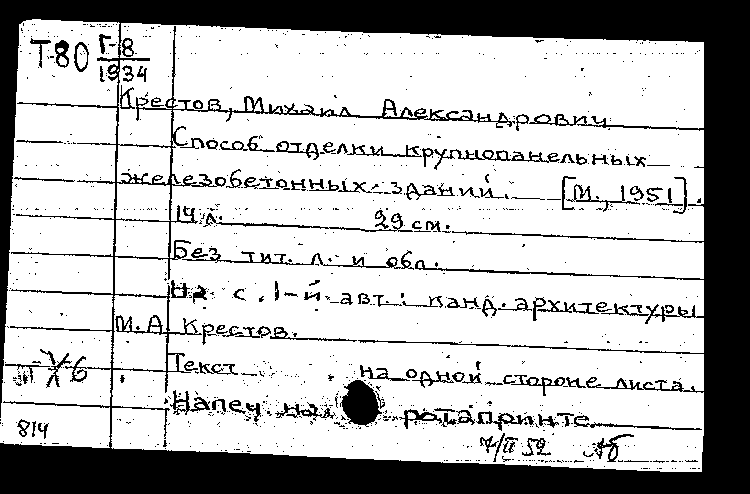 Т-80 Г-8
1934
Крестов, Михаил Александрович
Способ отделки крупнопанельных
железобетонных зданий. [М., 1951].
14 л. 29 см.
Без тит. л. и обл.
На с. 1-й авт.: канд. архитектуры
М.А. Крестов.
Текст на одной стороне листа.
Напеч. на ротапринте
814
7/II 52